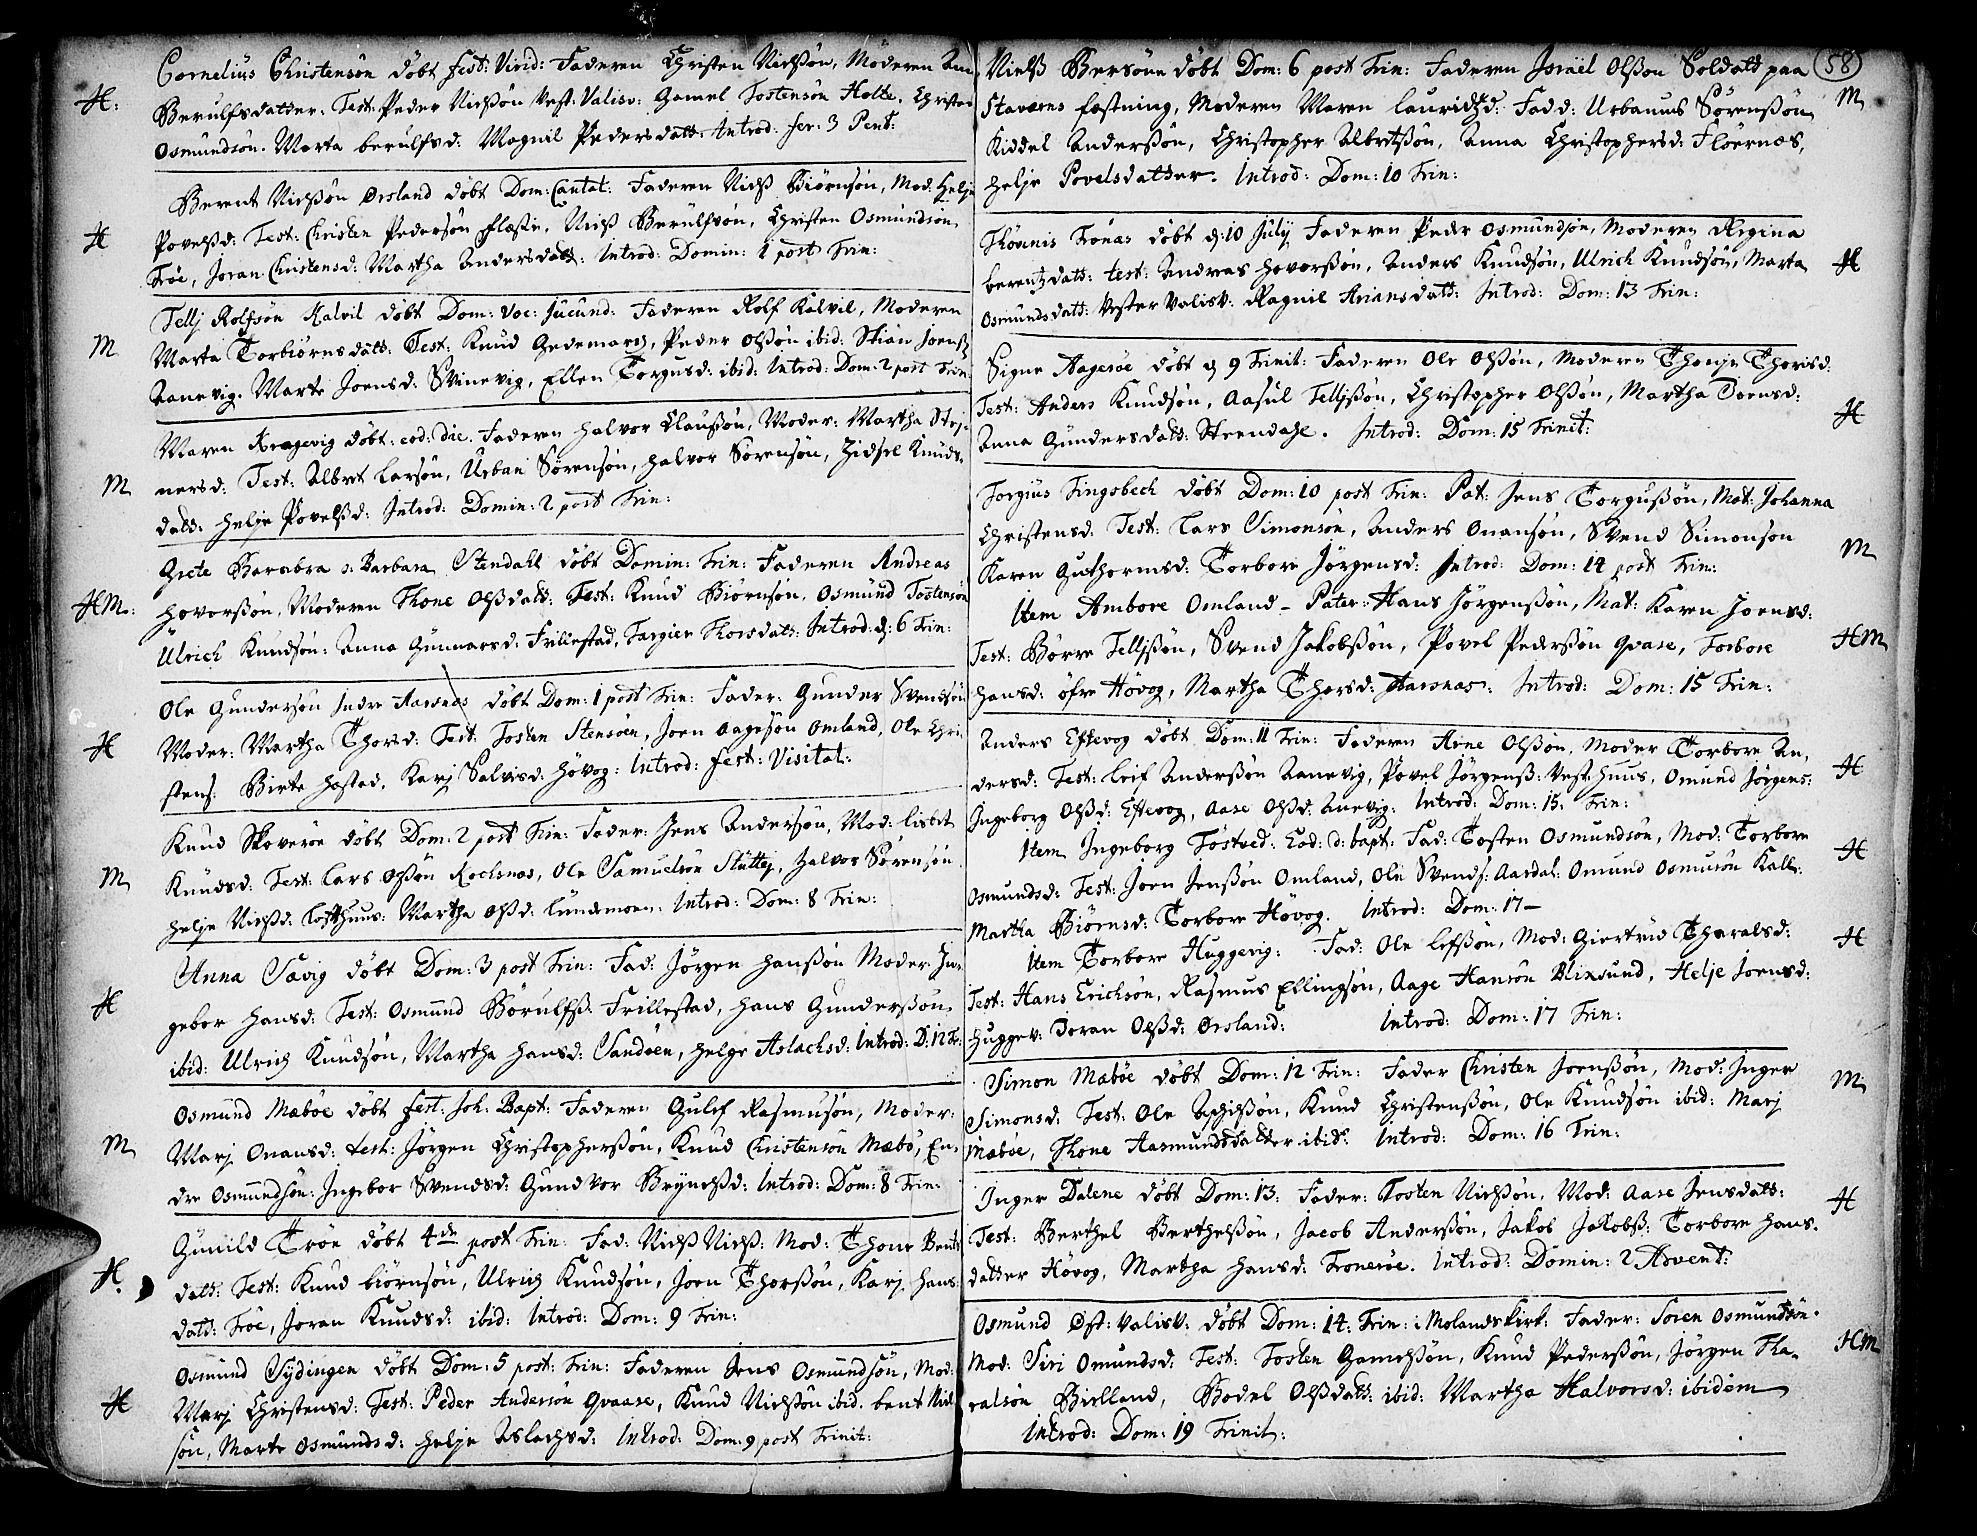 Cornelius Christensøn döbt fest: Virid: Faderen Christen Nielsßøn, Moderen An
H: Berulfsdatter. Test: Peder Nielsßøn Vest: Valisv: Gamel Tostensøn Holte. Christen
Osmundsøn. Marta berulfsd: Magnil Pedersdatt: Introd: fer: 3 Pent:
Berent Nielsßøn Orsland döbt Dom: Cantat: Faderen Nielß Biørnsøn, Mod: Helje
H Povelsd: Test: Christen Pedersøn, Nielß Berulfsøn, Christen Osmundsøn
Trøe, Joran Christensd: Martha Andersdatt: Introd: Domin: 1 post Trin:
Tellj Rolfsøn Kalvil döbt Dom: Voc: Jucund: Faderen Rolf Kalvil, Moderen
M Marta Torbiørnsdatt: Test: Knud Gedemars, Peder Olsßøn ibid: Stian Joens
Aanevig. Marte Joensd: Svinevig, Ellen Torgusd: ibid: Introd: Dom: 2 post Trin
Maren Kragevig döbt: eod: die. Faderen Halvor Claußøn, Moder: Martha Stej-
M nersd: Test: Albret Larsøn, Urban Sørensøn, Halvor Sørensøn, Zidsel Knuds-
datt: Helje Povelßd: Introd: Domin: 2 post Trin:
Grete Barabra ɔ: Barbara Stendahl döbt Domin: Trin: Faderen Andreas
HM: Hovorßøn, Moderen Thone Olßdatt: Test: Knud Biørnsøn, Osmund Tostensøn
Ulrich Knudsøn: Anna Gunnarsd: Frillestad, Targier Thorsdatt: Introd: d: 6 Trin:
Ole Gundersøn Indre Aarsnes döbt Dom: 1 post Trin: Fader: Gunder Svendsøn
H Moder: Martha Thorsd: Test: Tosten Stensøen, Joen Aagesøn Omland, Ole Chri-
stens: Birte Hastad, Karj Salvisd: Høvog: Introd: fest: Visitat:
Knud Skoverøe döbt Dom: 2 post Trin: Fader: Jens Andersøn, Mod: Lisbet
M Knudsd: Test: Lars Olßøn Rochsnes, Ole Samuelsøn Slüttej, Halvor Sørensøn
Helje Nielßd: Lofthuus: Martha Olßd: Lundemoen: Introd: Dom: 8 Trin:
Anna Sævig döbt Dom: 3 post Trin: Fad: Jörgen Hanßøn Moder: In-
H gebor Hansd: Test: Osmund Börulfß: Frillestad, Hans Gunderßøn
ibid: Ulrich Knudsøn, Martha Hansd: Sandøen, Helge Aslachsd: Introd: D: 12 Tr:
Osmund Mæbøe döbt fest: Joh: Bapt: Faderen Gulef Rasmusøn, Moder:
M Marj Onansd: test: Jörgen Christopherßøn, Knud Christensøn Mæbø, En-
dre Osmundsøn: Ingebor Svendsd: Gundvor Brynelßd: Introd: Dom: 8 Trin:
Gunild Trøe döbt 4de post Trin: Fad: Nielß Nielß: Mod: Thone Bents
H. datt: Test: Knud Biørnsøn, Ulrich Knudsøn, Joen Thorßøn, Karj Hans
datt: Trøe, Joran Knudsd: ibid: Introd: Dom: 9 Trin:
Osmund Sÿdingen döbt Dom: 5 post: Trin: Faderen Jens Osmundsøn, Mod:
H Marj Christensd: Test: Peder Andersøn Qvaase, Knud Nielßøn ibid. bent Niel
søn, Marte Osmundsd: Helje Aslachsd: Introd: Dom: 9 post Trinit:
58
Nielß Bersöne döbt Dom: 6 post Trin: Faderen Israël Olßøn Soldatt paa
M Staværns fæstning, Moderen Maren Lauridtzd: Fadd: Urbanus Sørenßøn
Kiddel Anderßøn, Christopher Albretßøn, Anna Christophersd: Fløernæs,
Helje Povelsdatter. Introd: Dom: 10 Trin:
Thönnis Trönæs döbt d: 10 Julij Faderen Peder Osmundsøn, Moderen Regina
H berentzdatt: test: Andreas Hovorßøn, Anders Knudsøn, Ulrich Knudsøn, Marta
Osmundsdatt: Vester Valisv: Ragnil Ariansdatt: Introd: Dom: 13 Trin:
Signe Aagerøe döbt d 9 Trinit: Faderen Ole Olßøn, Moderen Thonje Thorisd:
H Test: Anders Knudsøn, Aasul Telljßøn, Christopher Olßøn, Martha Toensd:
Anna Gundersdatt: Steendahl. Introd: Dom: 15 Trinit:
Torgius Tingsbech döbt Dom: 10 post Trin: Pat: Jens Torgußøn, Mat: Johanna
M Christensd: Test: Lars Simonsøn, Anders Onansøn, Svend Simonsøn
Karen Guthormsd: Torbore Jörgensd: Introd: Dom: 14 post Trin:
Item Ambore Omland - Pater: Hans Jörgenßøn, Mat: Karen Joensd:
HM Test: Børre Telljßøn, Svend Jakobßøn, Povel Pedersøn Qvase, Torbore
Hansd: öfre Høvog, Martha Thorsd: Aarsnæs. Introd: Dom: 15 Trin:
H Anders Eftevog döbt Dom: 11 Trin: Faderen Arne Olßøn, Moder Torbore An-
dersd: Test: Leif Anderßøn Aanevig, Povel Jörgenß: Vest: Huus, Omund Jörgens:
Ingeborg Olßd: Eftevog, Aase Olßd: Anevig: Introd: Dom: 15: Trin:
H Item Ingeborg Töstved: Eod: d: bapt: Fad: Tosten Osmundsøn, Mod: Torbore
Osmundsd: Test: Joen Jenßøn Omland, Ole Svends: Aardal: Omund Osmusøn Kalle:
Martha Biörnsd: Torbore Høvog. Introd: Dom: 17 -
H Item Torbore Huggevig: Fad: Ole Lefßøn, Mod: Giertrud Tharalsd:
Test: Hans Erichsøn, Rasmus Ellingsøn, Aage Hansøn Blixsund, Helje Joensd:
Huggev: Joran Olßd: Orsland: Introd: Dom: 17 Trin:
Simon Mæbøe döbt Dom: 12 Trin: Fader Christen Joenßøn, Mod: Inger
M Simonsd: Test: Ole Aschißøn, Knud Christenßøn, Ole Knudsøn ibid: Marj
Mæbøe, Thone Aasmundsdatter ibid: Introd: Dom: 16 Trin:
Inger Dalene döbt Dom: 13: Fader: Tosten Nielßøn, Mod: Aase Jensdatt:
H Test: Berthel Berthelßøn, Jacob Anderßøn, Jakob Jakobß: Torbore Hans-
datter Høvog, Martha Hansd: Troneröe. Introd: Domin: 2 Advent:
Osmund Øst: Valisv: döbt Dom: 14: Trin: i Molands Kirk: Fader: Soren Osmundsøn
HM Mod: Siri Omundsd: Test: Tosten Gamelßøn, Knud Pederßøn, Jörgen Tha-
ralsøn Birlland, Bodel Olßdatt: ibid: Martha Halvorsd: ibidem
Introd: Dom: 19 Trinit: